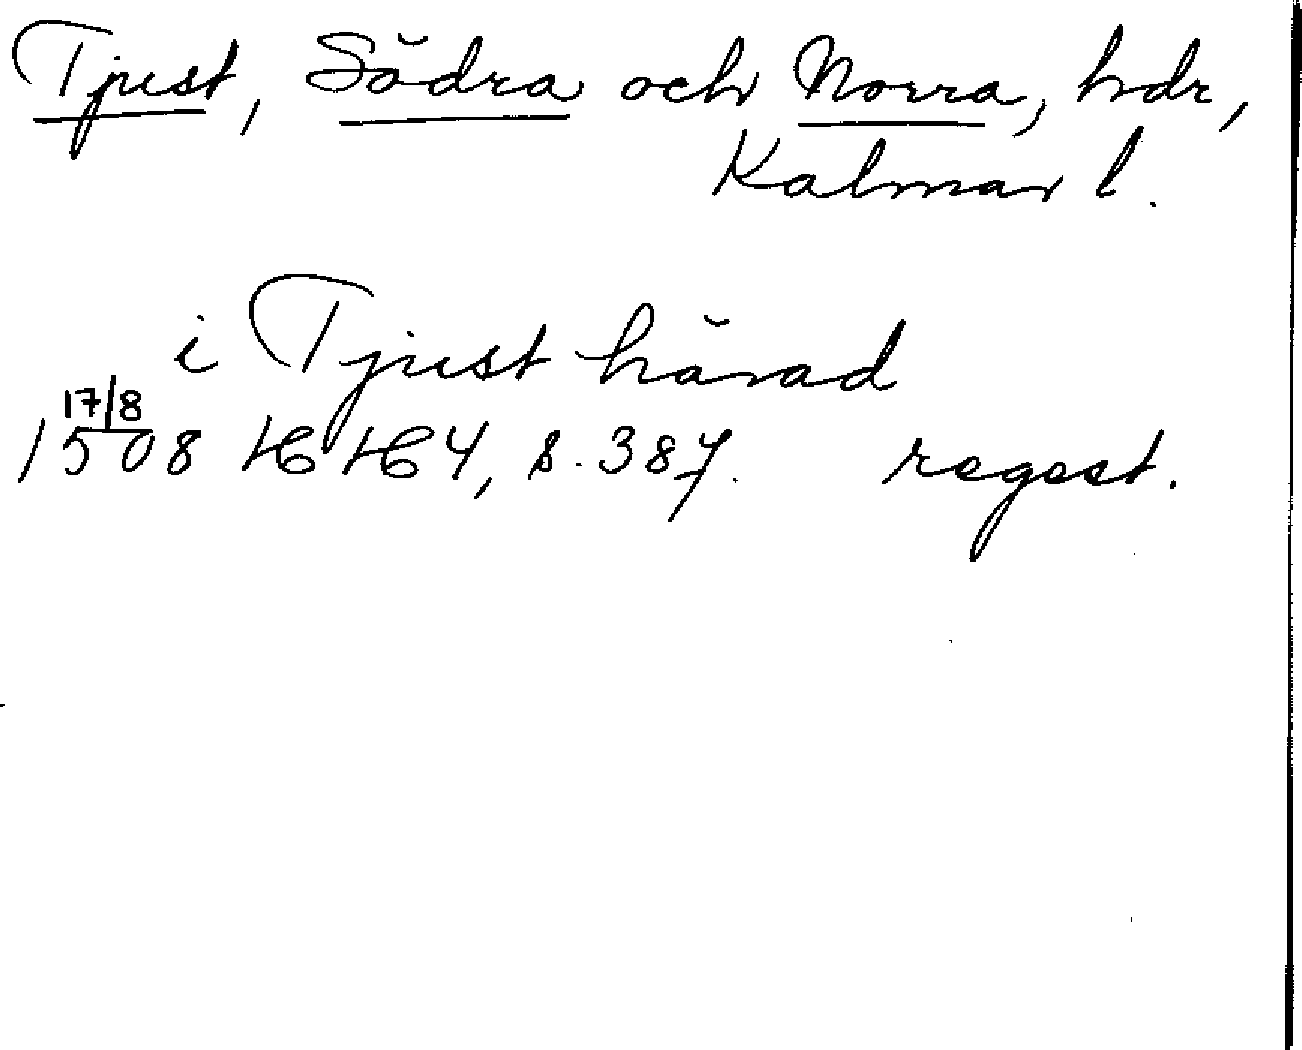 Tjust, Södra och Norra, hdr,
Kalmar l.
i Tjust härad
17/8
1508 HH 4, s. 387. regest.